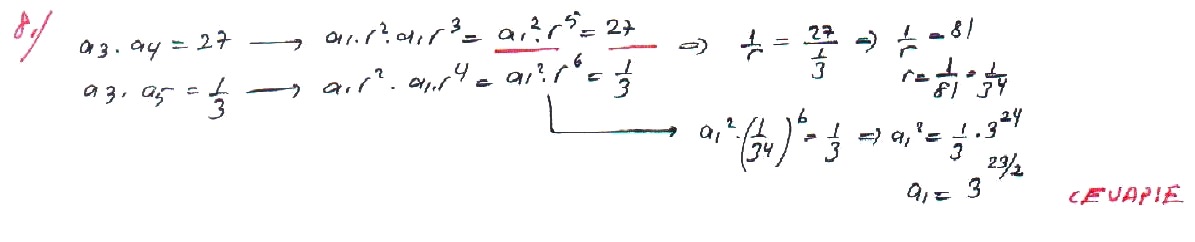 8.) a3 . a4 = 27 → a1.r². a1 r³ = a1².r⁵ = 27 ⇒ 1/r = 27/(1/3) ⇒ 1/r = 81
a3 . a5 = 1/3 → a1.r² . a1.r⁴ = a1².r⁶ = 1/3 r = 1/81 = 1/3⁴
→ a1² . (1/3⁴)⁶ = 1/3 ⇒ a1² = 1/3 . 3²⁴
a1 = 3^(23/2) CEVAP:E